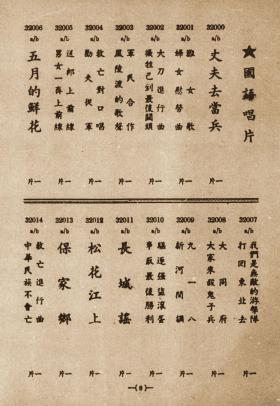 ★國語唱片
32000 a/b 丈夫去當兵 一片
32001 a/b 難女歌
婦女慰勞曲 一片
32002 a/b 大刀進行曲
犧牲已到最後關頭 一片
32003 a/b 軍民合作
風陵渡的歌聲 一片
32004 a/b 救亡對口唱
勸夫從軍 一片
32005 a/b 送郎上前線
男女一齊上前線 一片
32006 a/b 五月的鮮花 一片
32007 a/b 我們是無敵的游擊隊
打回東北去 一片
32008 a/b 大同府
大家來殺鬼子兵 一片
32009 a/b 九一八
新河間調 一片
32010 a/b 驅逐強盜滾蛋
爭取最後勝利 一片
32011 a/b 長城謠 一片
32012 a/b 松花江上 一片
32013 a/b 保家鄉 一片
32014 a/b 救亡進行曲
中華民族不會亡 一片